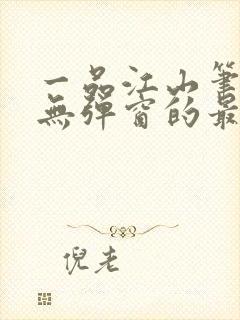 一品江山筆
無彈窗的最
倪老